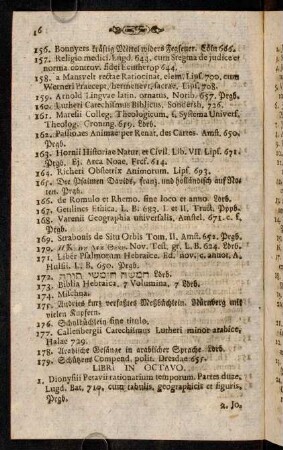 16
156. Bonnyers kräftig Mittel widers Fegfeuer. Cölln 666.
157. Religio medici. Lugd. 644. cum Stegma de judice et
norma controv. fidei Eleutherop 644.
158. a Mansvelt rectae Ratiocinat. elem. Lips. 700. cum
Werneri Praecept. hermenevt. sacrae, Lips. 708.
159. Arnold Linguae latin. ornatus, Norib. 657. Prgb.
160. Lutheri Catechismus Biblicus, Sondersh. 726.
161. Maresii Colleg. Theologicum, s. Systema Univers.
Theolog. Groning. 659. Ldrb.
162. Passiones Animae per Renat. des Cartes. Amst. 650.
Prgb.
163. Hornii Historiae Natur. et Civil. Lib. VII. Lips. 671.
Prgb. Ej. Arca Noae, Fref. 614.
164. Richeri Obstetrix Animorum. Lips. 693.
165. Die Psalmen Davids, franz. und holländisch auf Noten. Prgb.
166. de Romulo et Rhemo, sine loco et anno. Ldrb.
167. Genlincs Ethica. L. B. 683. I. et II. Fruft. Pppb.
168. Varenii Geographia universalis, Amstel. 671. c. f.
Prgb.
169. Strabonis de Situ Orbis Tom. II. Amst. 652. Prgb.
170. Nov. Test. gr. L. B. 624. Ldrb.
171. Liber Psalmorum Hebraice. Ed. nov. c. annot. A.
Hulsii. L. B. 650. Prgb.
172. חמשה חומשי תורה Ldrb.
173. Biblia Hebraica. 7 Volumina, 7 Ldrb.
174. Mischna.
175. kurz verfaßtes Meßbüchlein. Nürnberg mit
vielen Kupfern.
176. Schulbüchlein sine titulo.
177. Callenbergii Catechismus Lutheri minor arabice,
Halae 729.
178. Arabische Gesänge in arabischer Sprache. Ldrb.
179. Schützens Compend. polit. Dresdae 651.
LIBRI IN OCTAVO.
1. Dionysii Petavii rationarium temporum. Partes duae,
Lugd. Bat. 710. cum tabulis, geographicis et figuris,
Prgb.
2. Jo.